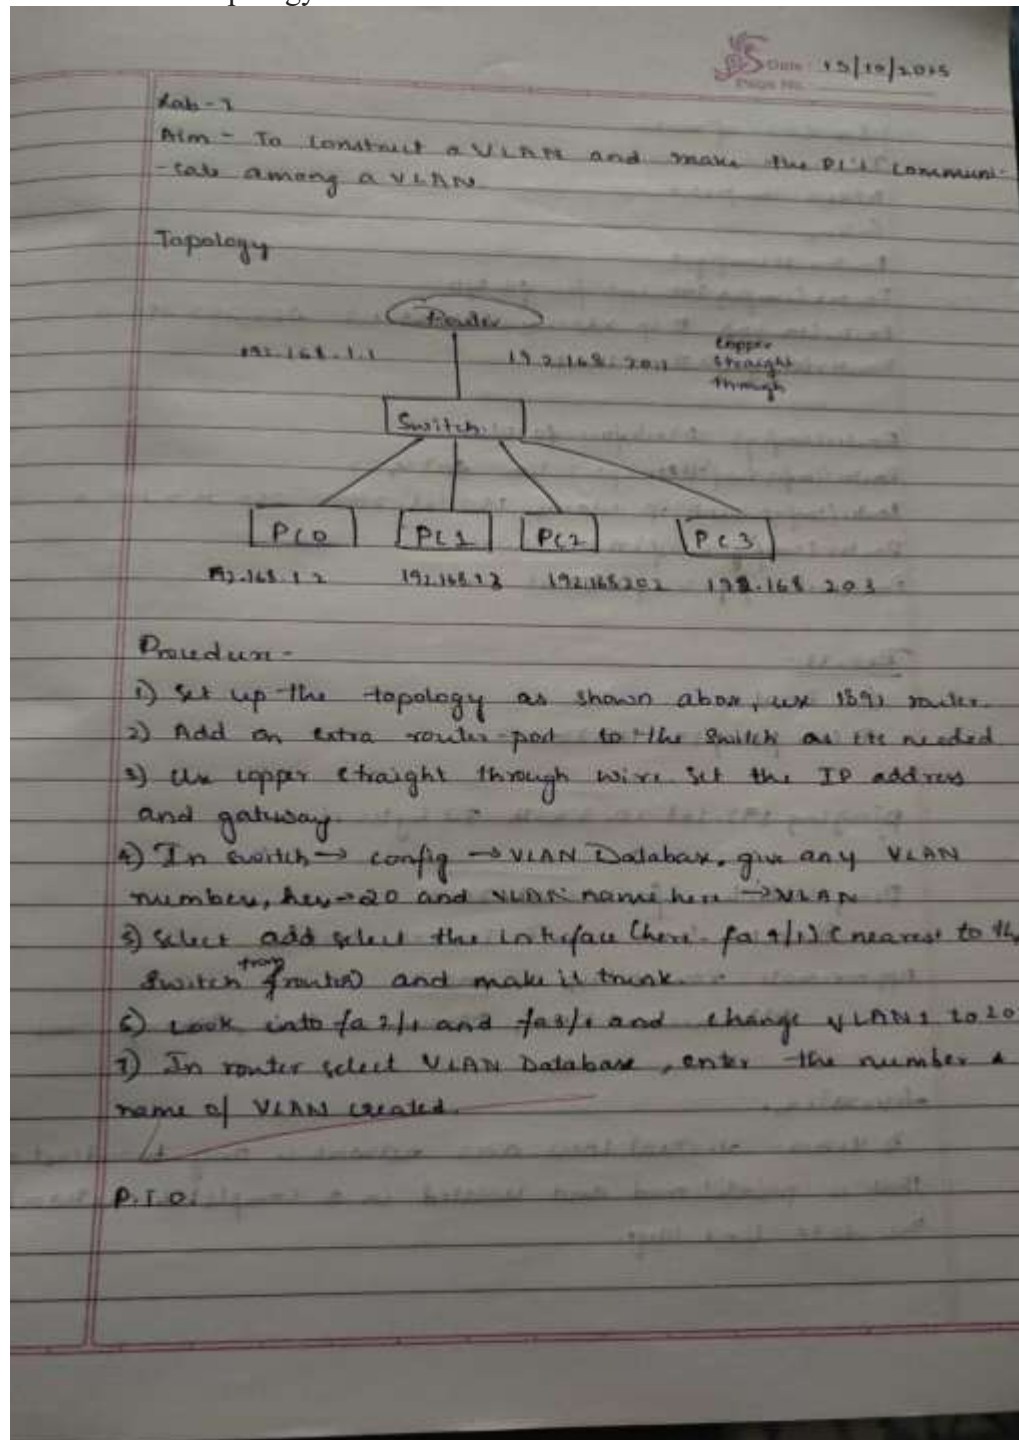 Date: 15/10/2025
Page No.
Lab-7
Aim - To construct a VLAN and make the PC's communi-
-cate among a VLAN
Topology
Router
192.168.1.1 192.168.20.1 Copper
straight
through
Switch
PC0 PC1 PC2 PC3
192.168.1.2 192.168.1.3 192.168.20.2 192.168.20.3
Procedure-
1) Set up the topology as shown above, use 1841 router.
2) Add an extra router port to the Switch as its needed
3) Use copper straight through wire set the IP address
and gateway.
4) In switch → config → VLAN Database, give any VLAN
number, here→20 and VLAN name here → VLAN
5) Select add select the interface (here fa 9/1) (nearest to the
switch from router) and make it trunk.
6) Look into fa 2/1 and fa3/1 and change VLAN1 to 20
7) In router select VLAN Database, enter the number &
name of VLAN created.
P.T.O.